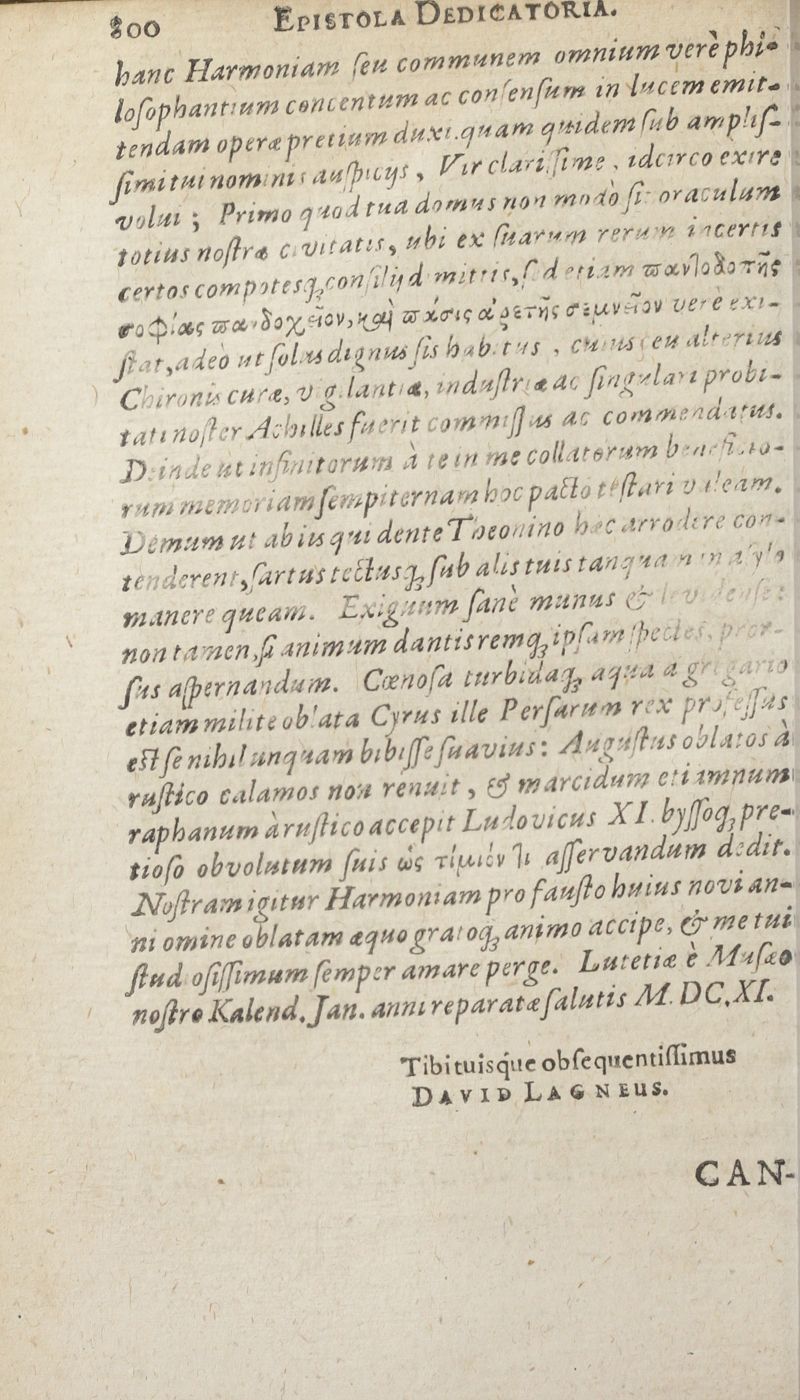 800 EPISTOLA DEDICATORIA.
hanc Harmoniam ſeu communem omnium verè phi-
loſophantium concentum ac conſenſum in lucem emit-
tendam operæpretium duxi. quam quidem ſub ampliſ-
ſimi tui nominis auſpicijs, Vir clariſſime, idcirco exire
volui; Primo quod tua domus non modò ſit oraculum
totius noſtræ civitatis, ubi ex ſuarum rerum incertis
certos compotesq; conſilij dimittis, ſed etiam παντοδοτῆς
σοφίας πανδοχεῖον, καὶ πάσης ἀρετῆς σεμνεῖον verè exi-
ſtat, adeò ut ſolus dignus ſis habitus, cuius ceu alterius
Chironis curæ, vigilantiæ, induſtriæ ac ſingulari probi-
tati noſter Achilles fuerit commiſſus ac commendatus.
Deinde ut infinitorum à te in me collatorum beneficio-
rum memoriam ſempiternam hoc pacto teſtari videam.
Demum ut ab iis qui dente Theonino hæc arrodere con-
tenderent, ſartus tectusq; ſub alis tuis tanquam in aſylo
manere queam. Exiguum ſanè munus & levidenſe:
non tamen, ſi animum dantis remq; ipſam ſpectes, pror-
ſus aſpernandum. Cœnoſa turbidaq; aqua a gregario
etiam milite oblata Cyrus ille Perſarum rex profeſſus
eſt ſe nihil unquam bibiſſe ſuavius: Auguſtus oblatos à
ruſtico calamos non renuit, & marcidum etiamnum
raphanum à ruſtico accepit Ludovicus XI. byſſoq; pre-
tioſo obvolutum ſuis ὡς τίμιόν τι aſſervandum dedit.
Noſtram igitur Harmoniam pro fauſto huius novi an-
ni omine oblatam æquo gratoq; animo accipe, & me tui
ſtudioſiſſimum ſemper amare perge. Lutetiæ è Muſæo
noſtro Kalend. Jan. anni reparatæ ſalutis M. DC. XI.
Tibi tuisq́ue obſequentiſſimus
DAVID LAGNEUS.
CAN-